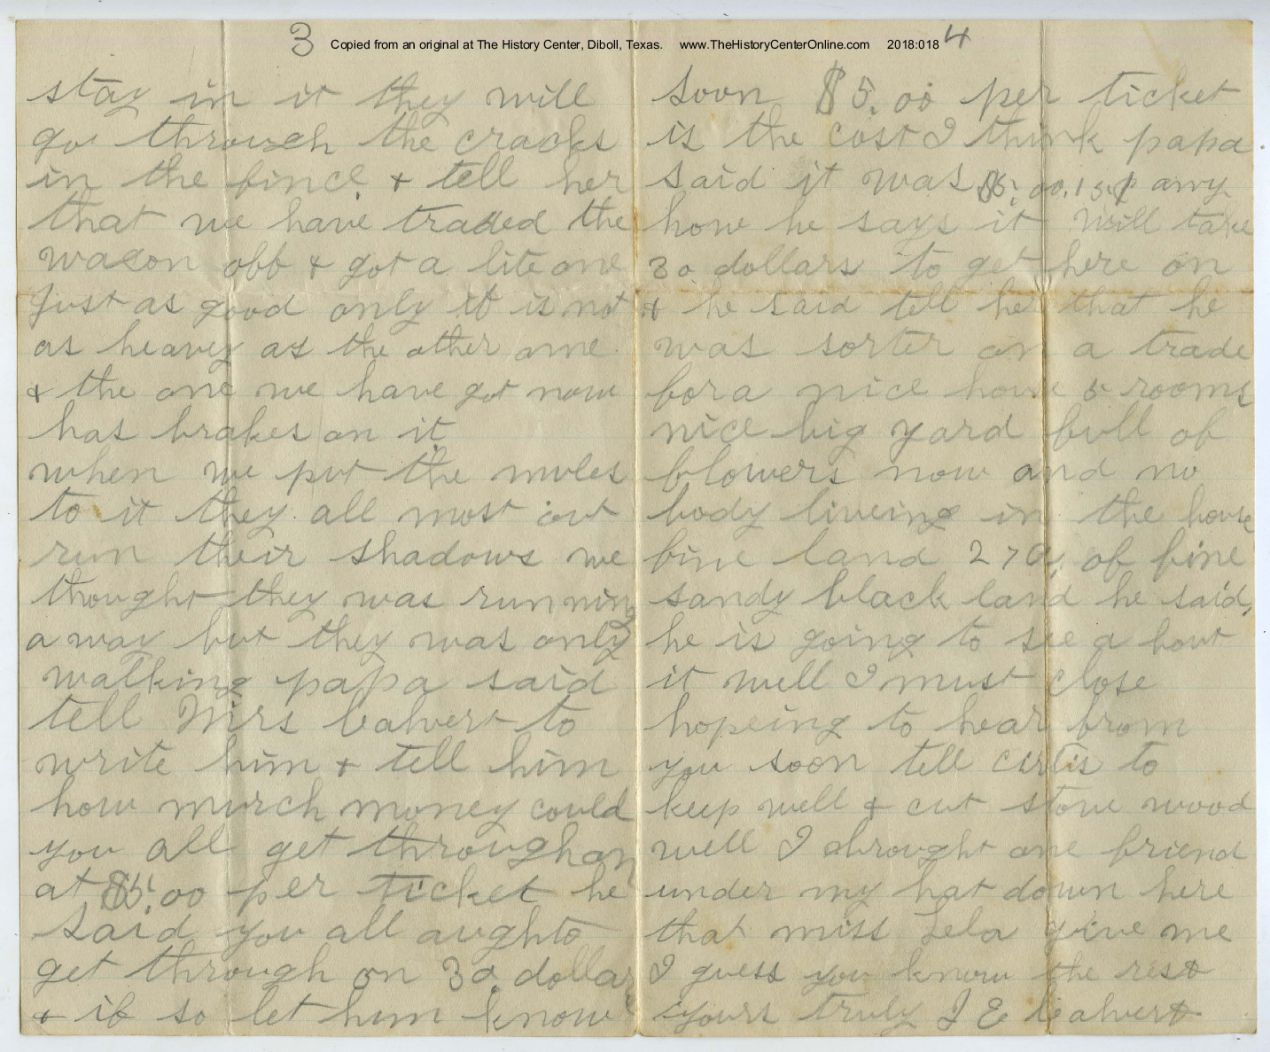 3
Copied from an original at The History Center, Diboll, Texas. www.TheHistoryCenterOnline.com 2018:018
4
stay in it they will
go through the cracks
in the fince & tell her
that we have traded the
wagon off & got a lite one
just as good only it is not
as heavey as the other one
& the one we have got now
has brakes on it
when we put the mules
to it they all most out
run their shadows we
thought they was running
a way but they was only
walking papa said
tell Mrs Calvert to
write him & tell him
how mutch money could
you all get through on
at $5.00 per ticket he
said you all aughto
get through on 30 dollars
& if so let him know
soon $5.00 per ticket
is the cost I think papa
said it was $5.00 any
how he says it will take
30 dollars to get here on
& he said tell her that he
was sorter on a trade
for a nice house 5 rooms
nice big yard full of
flowers now and no
body liveing in the house
fine land 27 of fine
sandy black land he said,
he is going to see a bout
it well I must close
hopeing to hear from
you soon tell Curtis to
keep well & cut stove wood
well I brought one friend
under my hat down here
that miss Lela give me
I guess you know the rest
yours truly J E Calvert